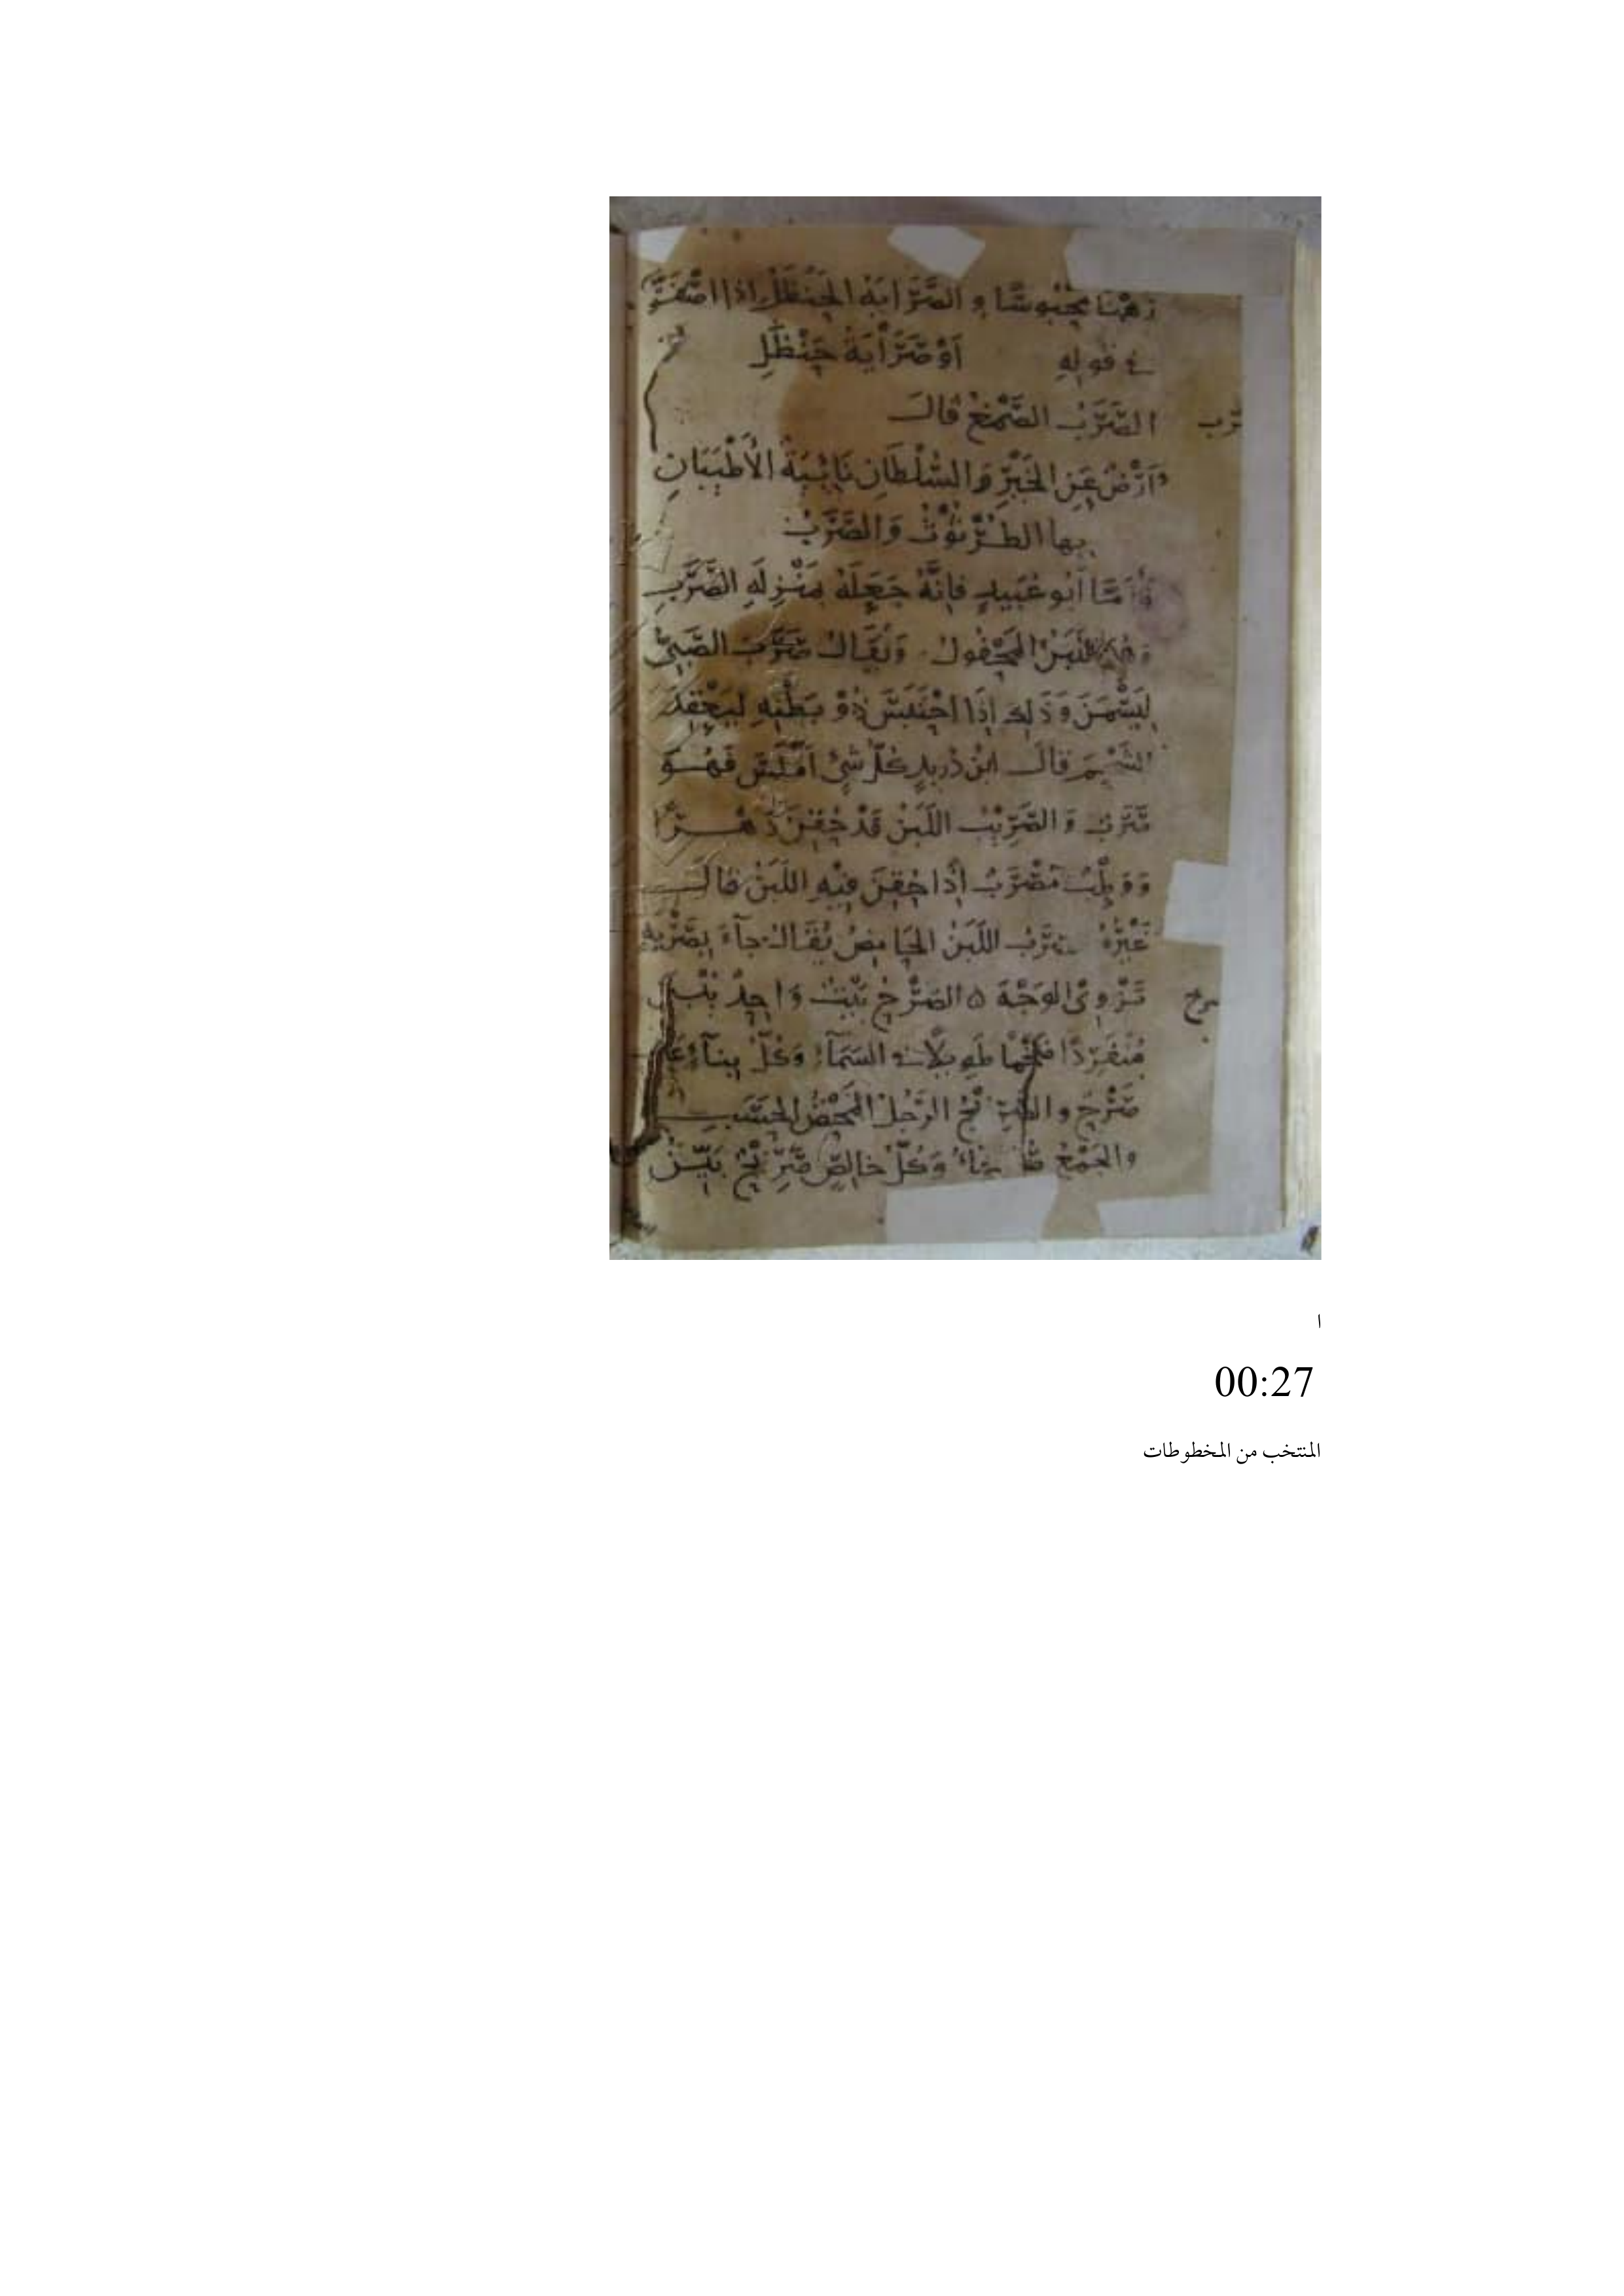 رَهْنًا مَحْبُوسًا وَ الصَّرَايَةُ الحَنْظَلُ اِذَا اصْفَرَّ
في قوله أَوْ صَرَايَةُ حَنْظَلِ
الصَّرَبُ الصَّمْغُ قالَ
صَرب
أَرْضٌ عَنِ الخَيْرِ وَالسُّلْطَانِ نَائِيَةٌ الأَطْيَبَانِ
بها الطُّرْثُوثُ وَالصَّرَبُ
وَأَمَّا أَبو عُبَيدٍ فإِنَّهُ جَعَلَهُ بمَنْزِلَةِ الصَّرْبِ
وهو اللَّبَنُ المَحْقُونُ وَيُقَالُ صَرَبَ الصَّبِيُّ
لِيَسْمَنَ وَذَلِكَ إِذَا احْتَبَسَ ذُو بَطْنِهِ لِيَعْقِدَ
الشَّحْمَ قالَ ابنُ دُريدٍ كُلُّ شَيْءٍ أَمْلَسَ فَهُوَ
صَرَبٌ وَ الصَّرِيْبُ اللَّبَنُ قَدْ حُقِنَ دَهْرًا
وَ وَطْبٌ مَصْرَبٌ إِذَا حُقِنَ فِيْهِ اللَّبَنُ قالَ
غَيْرُهُ الصَّرْبُ اللَّبَنُ الحَامِضُ يُقَالُ جآءَ بِصَرْبَةٍ
تَزْوِي الوَجْهَ ه الصَّرْحُ بَيْتٌ وَاحِدٌ يُبْنَى
صرح
مُنْفَرِدًا ضَخْمًا طَوِيلاً في السَّمَآءِ وَكُلُّ بِنآءٍ عَالٍ
صَرْحٌ و الصَّرِيْحُ الرَّجُلُ المَحْضُ الحَسَبِ
والجَمْعُ صُرَحَاءُ وَكُلُّ خالِصٍ صَرِيْحٌ بَيِّنُ
ا
00:27
المنتخب من المخطوطات